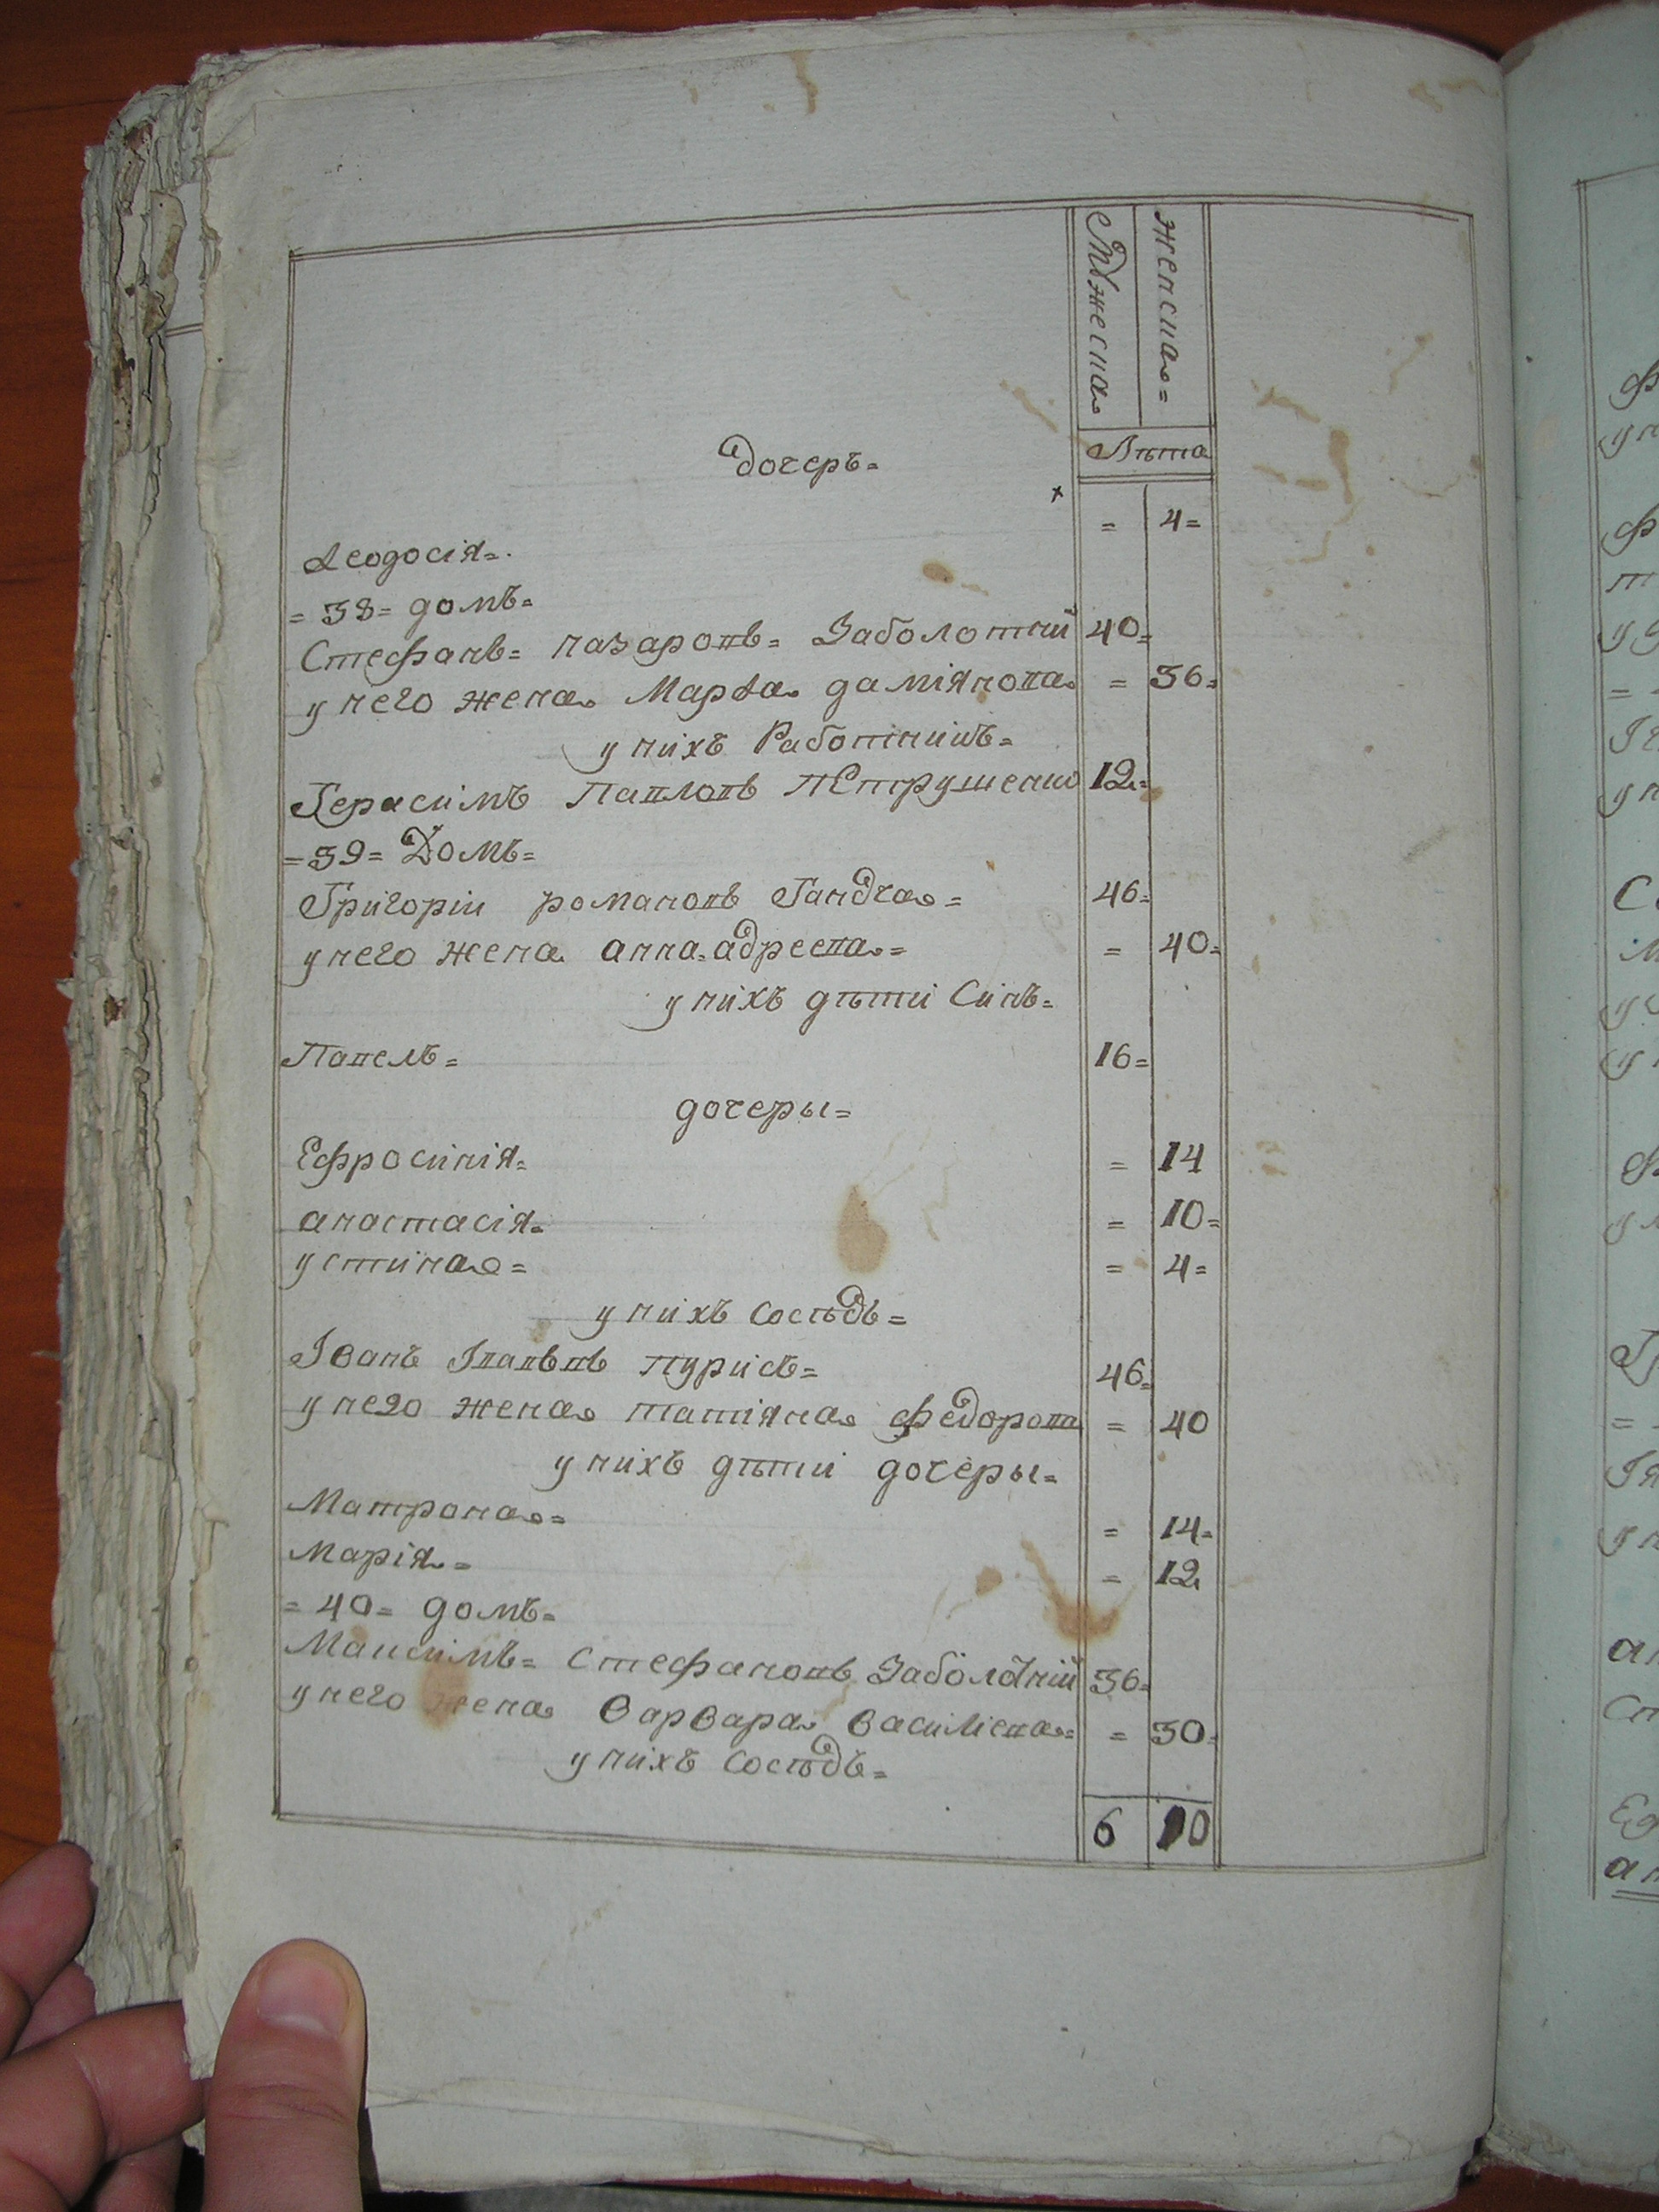 Мужеска
женска=
Лѣта
дочерь=
= 4=
Ѳеодосія=
=38= домъ=
Стефанъ= назаровъ= Заболотній 40=
у него жена Марѳа даміянова = 36=
у нихъ Работникъ=
Герасимъ Павловъ Петрушенко 12=
=39= Домъ=
Григоріи романовъ Гандча= 46=
у него жена анна адреева= = 40=
у нихъ дѣти Синъ=
Павелъ= 16=
дочеры=
Ефросинія= = 14
анастасія= = 10=
устина= = 4=
у нихъ сосѣдъ=
Іванъ Івановъ пурисъ= 46=
у него жена татіяна федорова = 40
у нихъ дѣти дочеры=
Матрона= = 14=
Марія= = 12
=40= домъ=
Максимъ= стефановъ Заболотній 36=
у него жена варвара василіева= = 30=
у нихъ сосѣдъ=
6 10